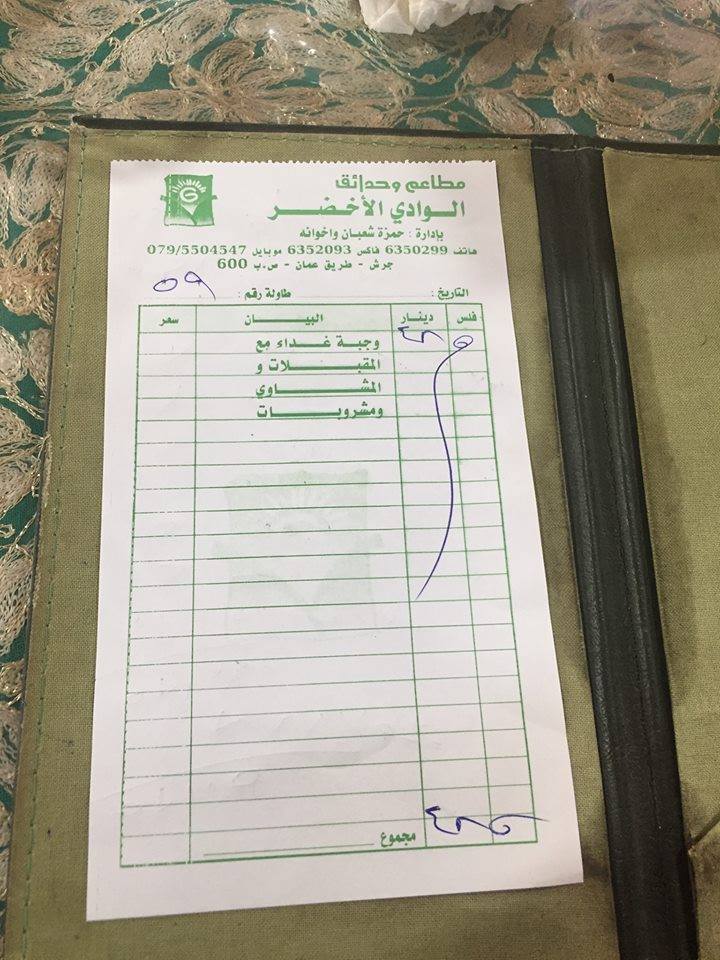 مطاعم وحدائق
الوادي الأخضر
بإدارة : حمزة شعبان واخوانه
هاتف 6350299 فاكس 6352093 موبايل 079/5504547
جرش - طريق عمان - ص.ب 600
التاريخ : طاولة رقم : ٥٩
فلس دينار البيان سعر
وجبة غداء مع
المقبلات و
المشاوي
ومشروبات
مجموع